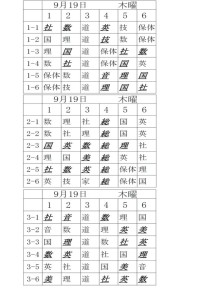 9月19日 木曜
1 2 3 4 5 6
1-1 社 数 道 英 技 保体
1-2 国 理 道 技 数 保体
1-3 理 国 道 保体 社 数
1-4 数 国 道 保体 英 社
1-5 保体 数 道 音 理 国
1-6 保体 技 道 理 国 社
9月19日 木曜
1 2 3 4 5 6
2-1 数 理 社 総 国 英
2-2 数 社 理 総 国 英
2-3 国 英 数 総 理 社
2-4 理 国 美 総 英 社
2-5 社 数 英 総 保体 理
2-6 英 技 家 総 保体 国
9月19日 木曜
1 2 3 4 5 6
3-1 社 音 道 数 理 国
3-2 音 数 道 理 英 美
3-3 国 理 道 数 社 英
3-4 数 英 道 社 国 理
3-5 英 社 道 国 美 数
3-6 美 理 道 英 数 社